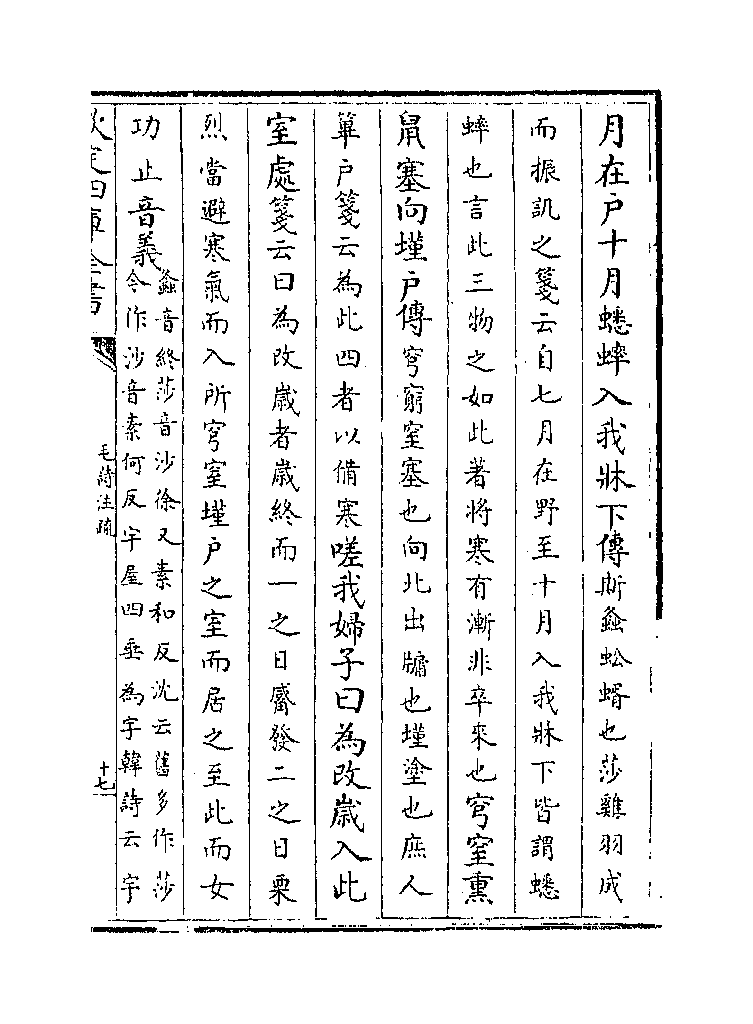 月在户十月蟋蟀入我牀下傳斯螽蚣蝑也莎雞羽成
而振訊之箋云自七月在野至十月入我牀下皆謂蟋
蟀也言此三物之如此著將寒有漸非卒來也穹窒熏
鼠塞向墐户傳穹窮窒塞也向北出牖也墐塗也庶人
篳户箋云為此四者以備寒嗟我婦子曰為改嵗入此
室處箋云曰為改嵗者嵗終而一之日觱發二之日栗
烈當避寒氣而入所穹窒墐户之室而居之至此而女
功止音義
螽音終莎音沙徐又素和反沈云舊多作莎
今作沙音素何反宇屋四垂為宇韓詩云宇
欽定四庫全書
毛詩注疏
十七